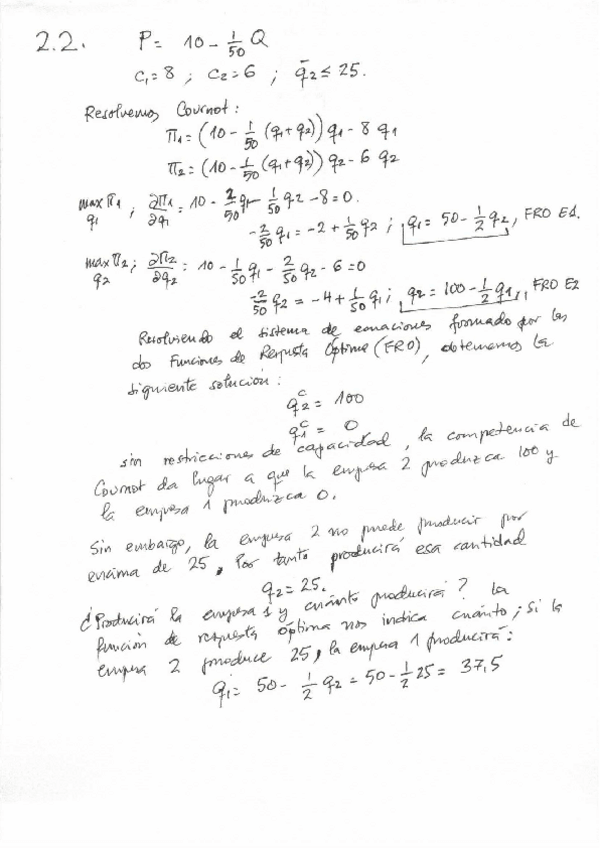 2.2. P = 10 - 1/50 Q
c1 = 8 ; c2 = 6 ; q̄2 ≤ 25.
Resolvemos Cournot:
Π1 = (10 - 1/50 (q1+q2)) q1 - 8 q1
Π2 = (10 - 1/50 (q1+q2)) q2 - 6 q2
max Π1 q1 ; ∂Π1/∂q1 = 10 - 2/50 q1 - 1/50 q2 - 8 = 0.
-2/50 q1 = -2 + 1/50 q2 ; q1 = 50 - 1/2 q2, FRO E1.
max Π2 q2 ; ∂Π2/∂q2 = 10 - 1/50 q1 - 2/50 q2 - 6 = 0
-2/50 q2 = -4 + 1/50 q1 ; q2 = 100 - 1/2 q1, FRO E2
Resolviendo el sistema de ecuaciones formado por las
dos Funciones de Respuesta Óptima (FRO), obtenemos la
siguiente solución:
q2^C = 100
q1^C = 0
sin restricciones de capacidad, la competencia de
Cournot da lugar a que la empresa 2 produzca 100 y
la empresa 1 produzca 0.
Sin embargo, la empresa 2 no puede producir por
encima de 25, Por tanto producirá esa cantidad
q2 = 25.
¿Producirá la empresa 1 y cuánto producirá? la
función de respuesta óptima nos indica cuánto; Si la
empresa 2 produce 25, la empresa 1 producirá:
q1 = 50 - 1/2 q2 = 50 - 1/2 25 = 37,5